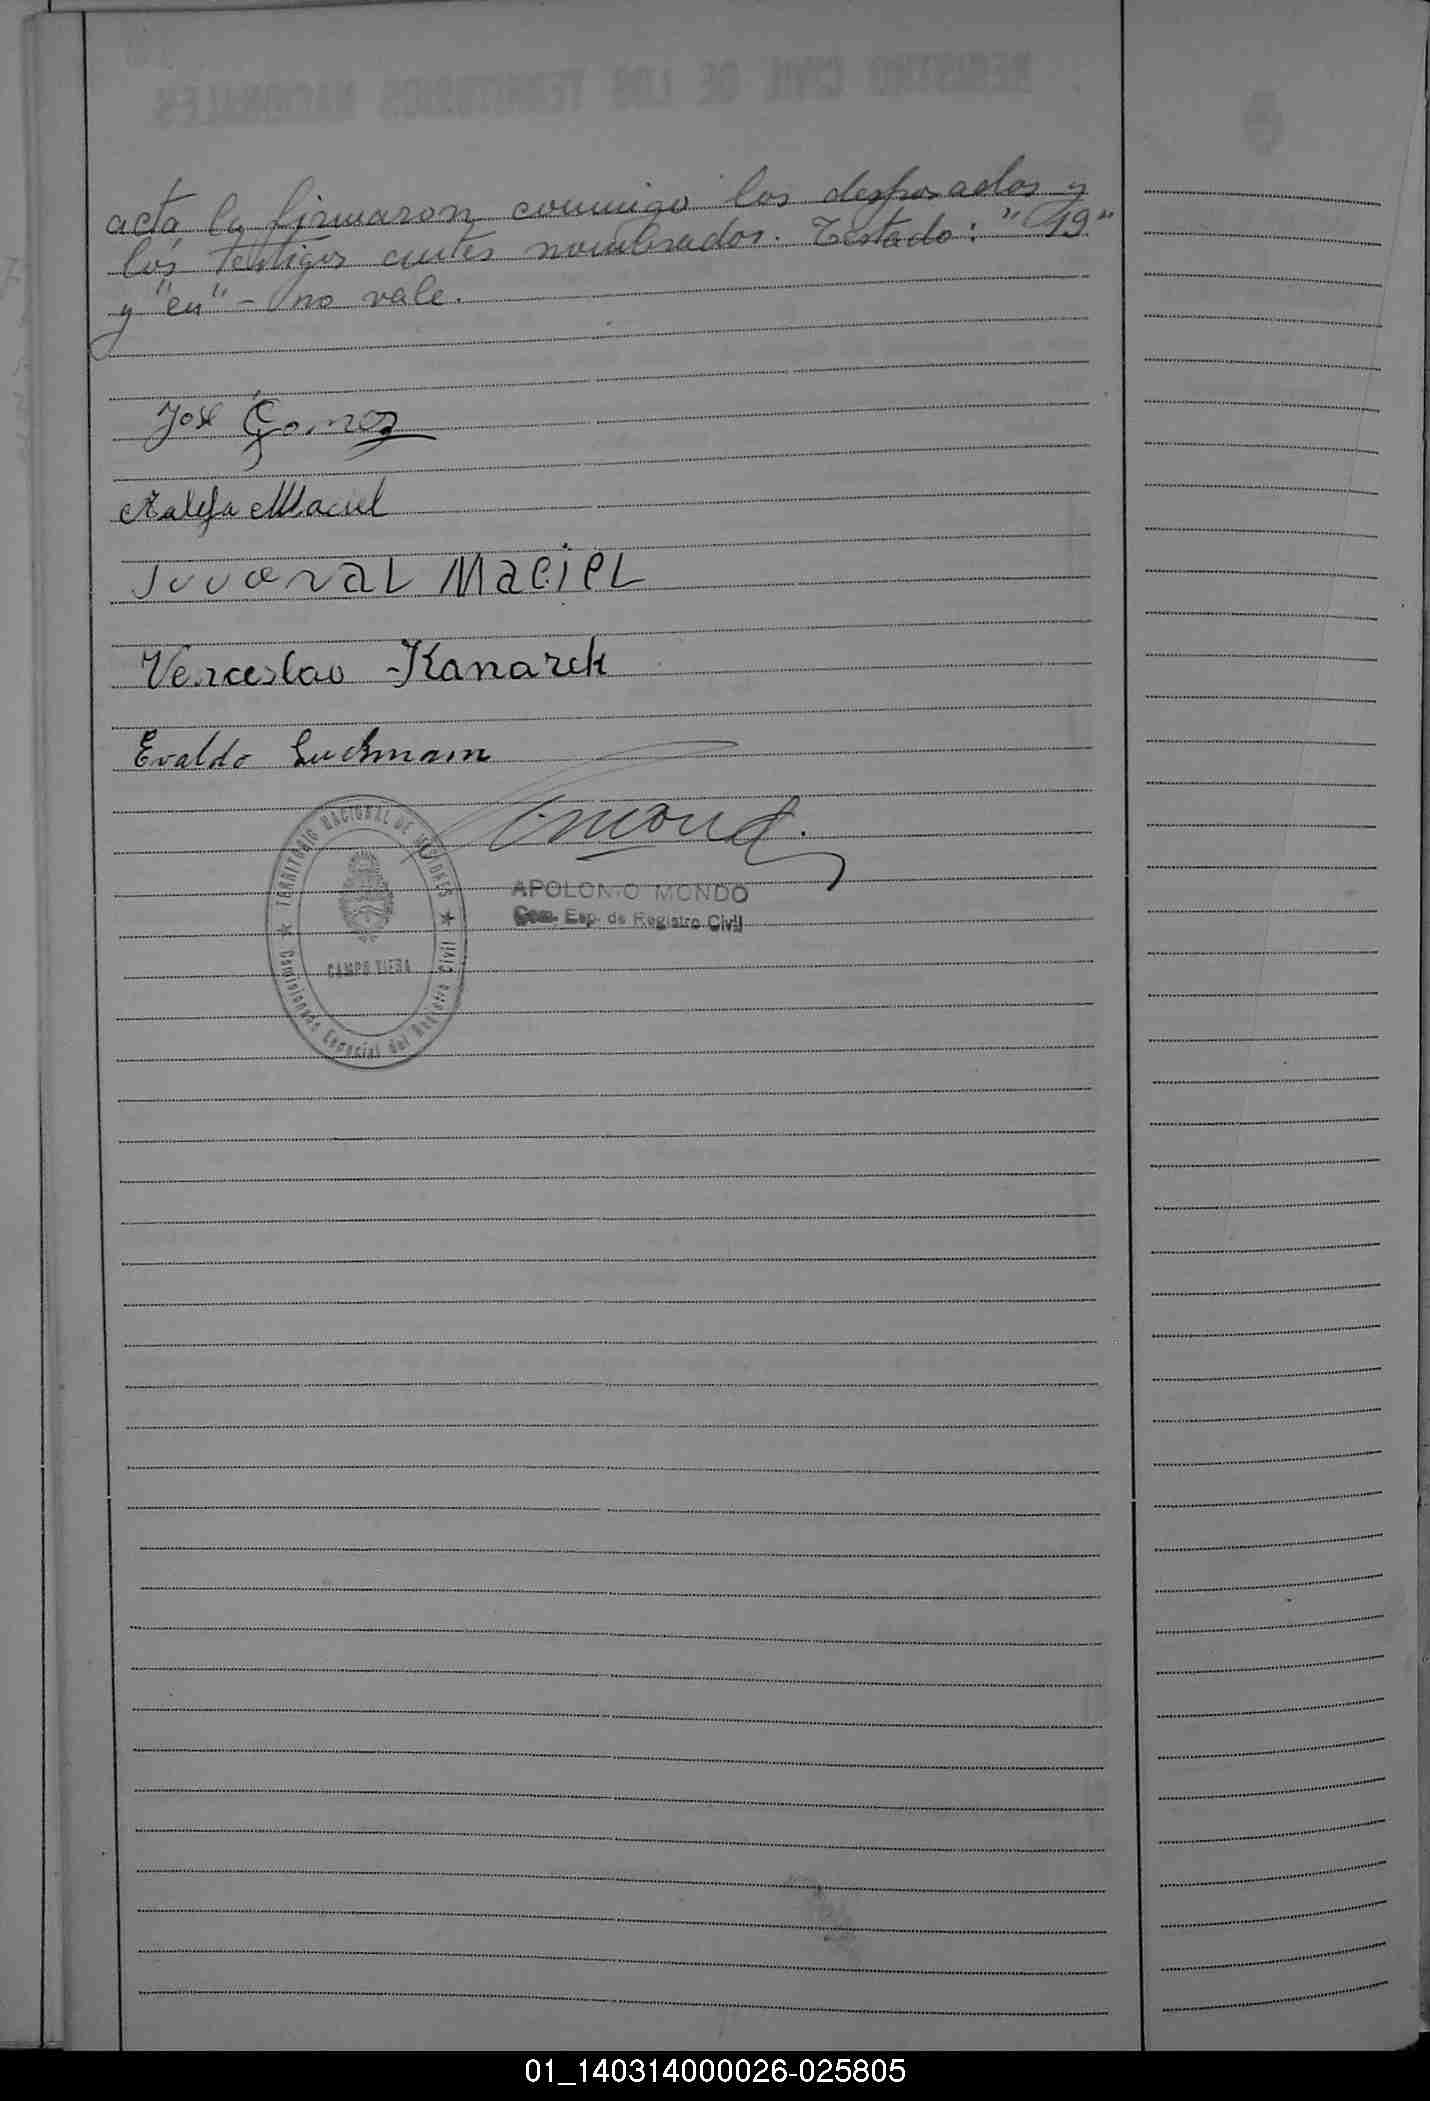 acta la firmaron conmigo los desposados y
los testigos antes nombrados. Testado: "19"
y "en" - no vale.
José Gomez
Maciel
Juvenal Maciel
Venceslao Kanarek
Evaldo
TERRITORIO NACIONAL DE MISIONES
CAMPO VIERA
Comisionado Especial del Registro Civil
APOLONIO MONDO
Com. Esp. de Registro Civil
01_140314000026-025805